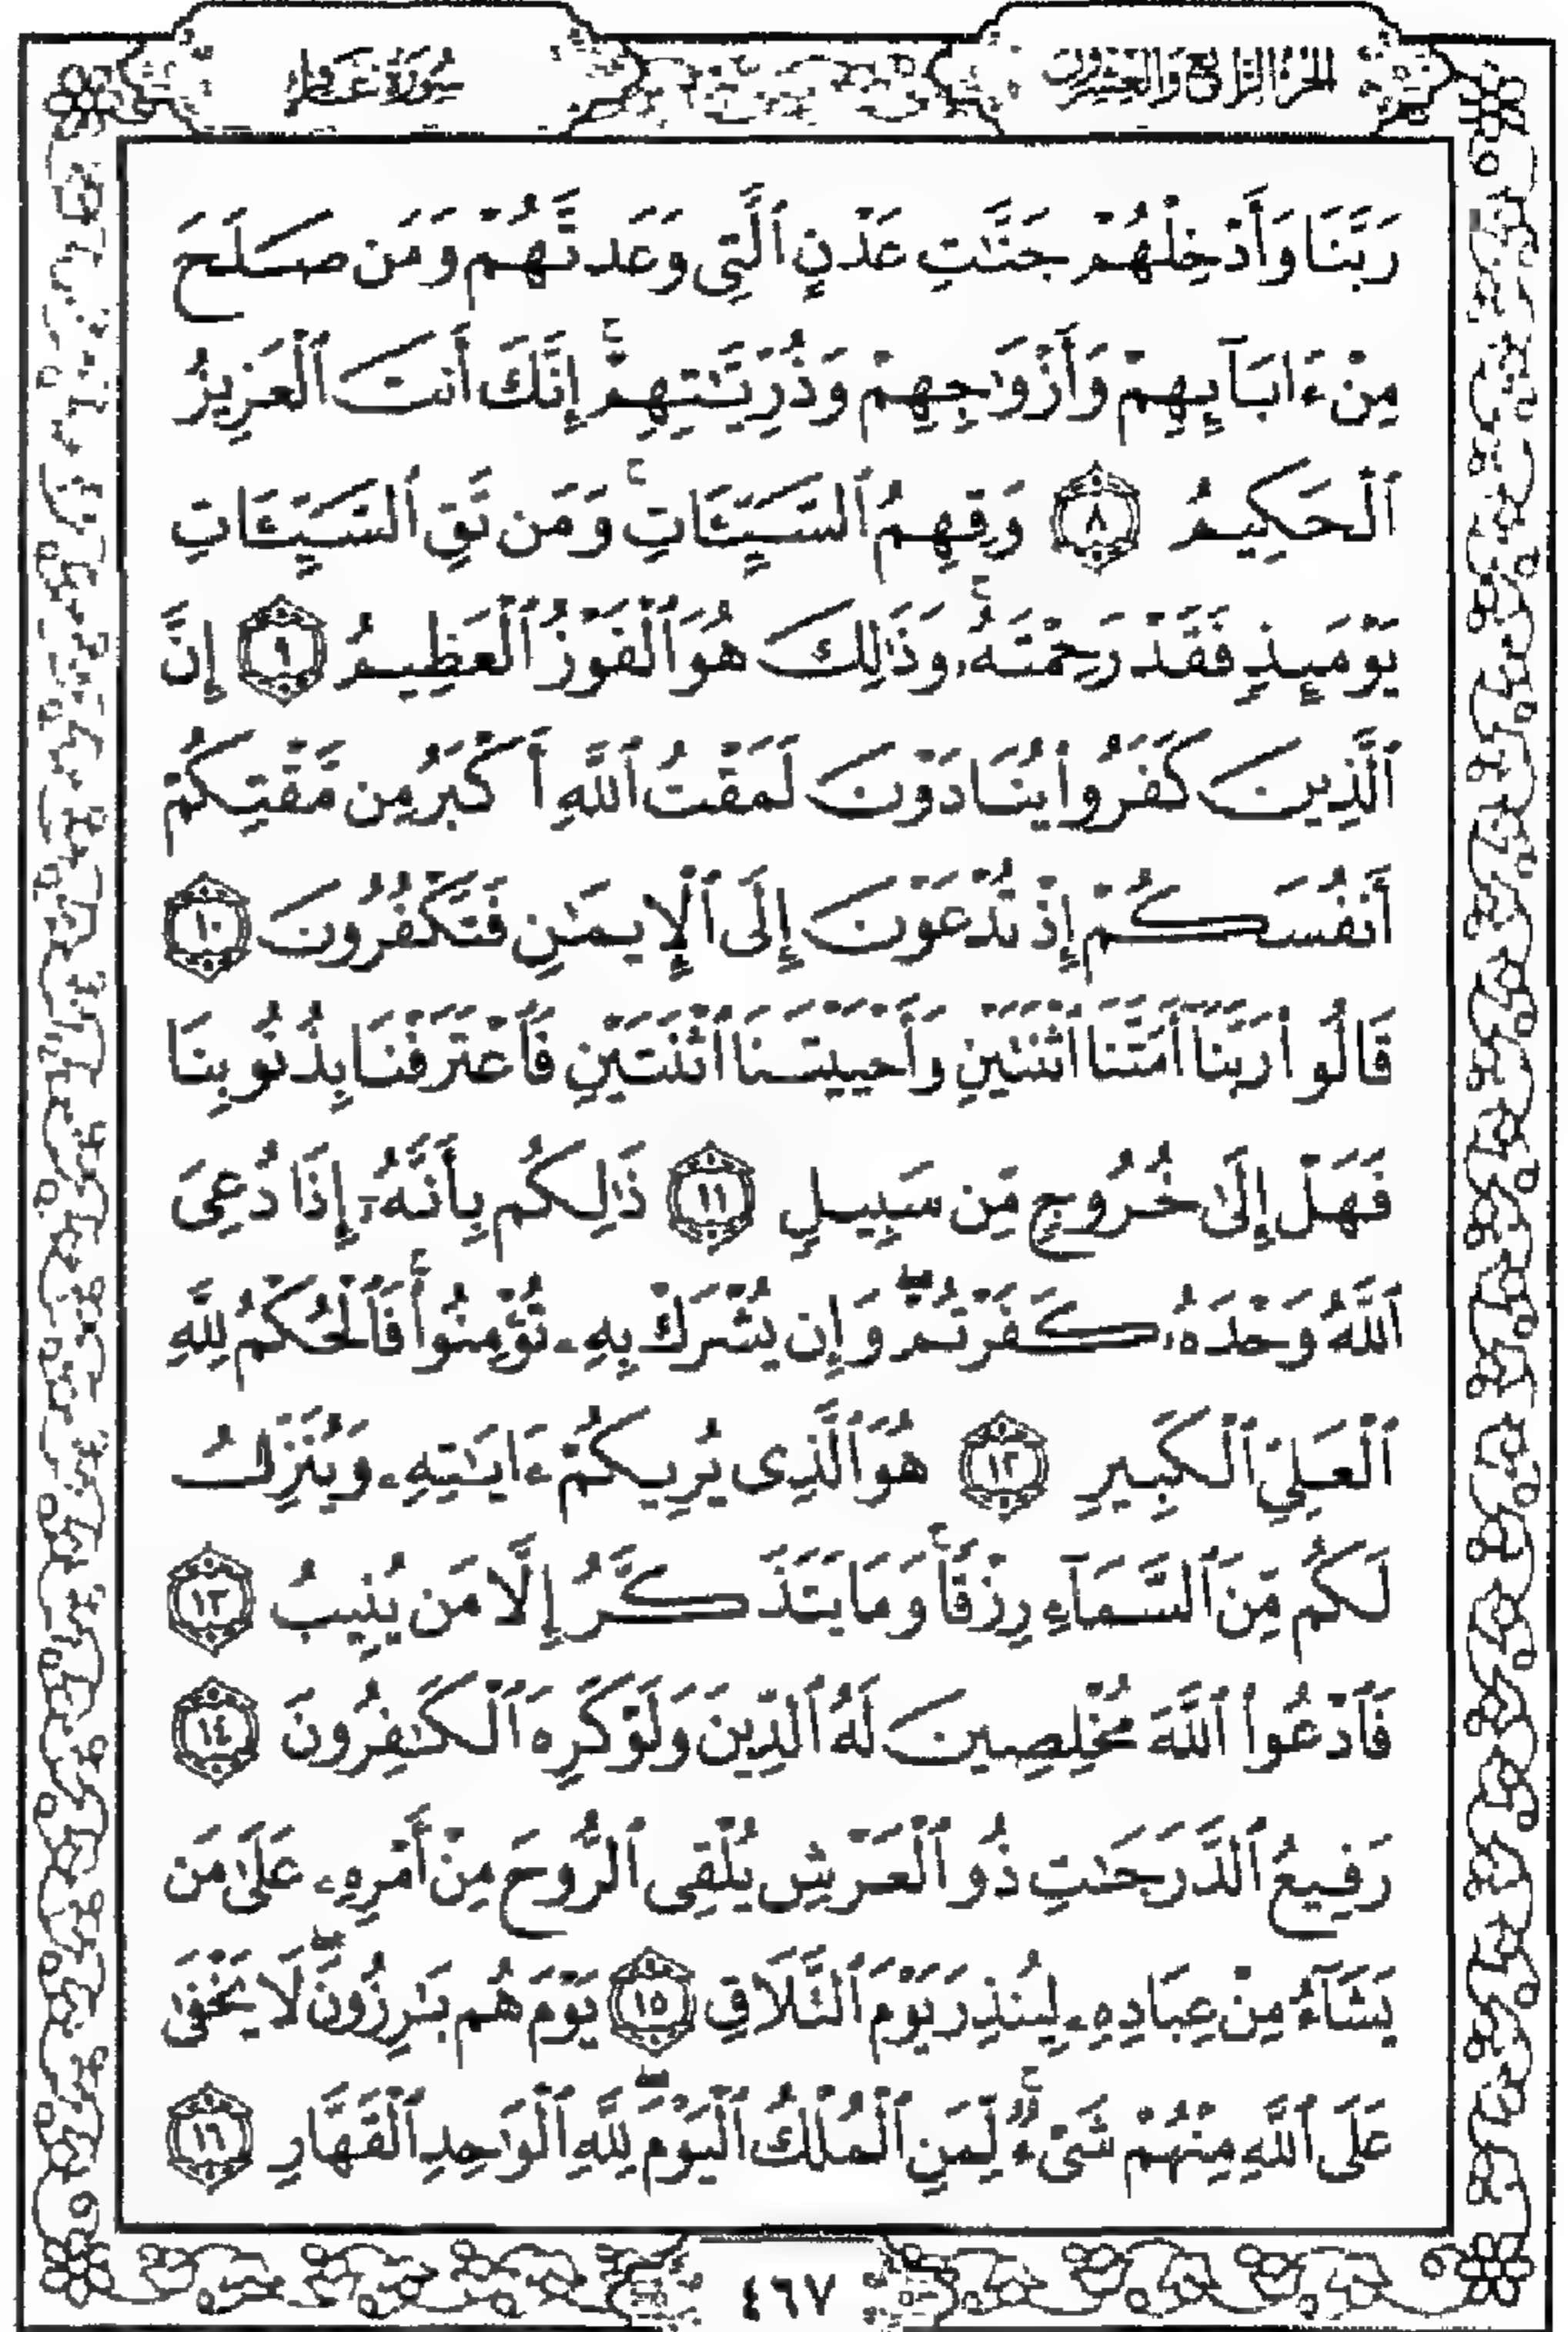 الجزء الرابع والعشرون
سورة غافر
رَبَّنَا وَأَدْخِلْهُمْ جَنَّٰتِ عَدْنٍ ٱلَّتِى وَعَدتَّهُمْ وَمَن صَلَحَ
مِنْ ءَابَآئِهِمْ وَأَزْوَٰجِهِمْ وَذُرِّيَّٰتِهِمْ ۚ إِنَّكَ أَنتَ ٱلْعَزِيزُ
ٱلْحَكِيمُ ٨ وَقِهِمُ ٱلسَّيِّـَٔاتِ ۚ وَمَن تَقِ ٱلسَّيِّـَٔاتِ
يَوْمَئِذٍ فَقَدْ رَحِمْتَهُۥ ۚ وَذَٰلِكَ هُوَ ٱلْفَوْزُ ٱلْعَظِيمُ ٩ إِنَّ
ٱلَّذِينَ كَفَرُوا۟ يُنَادَوْنَ لَمَقْتُ ٱللَّهِ أَكْبَرُ مِن مَّقْتِكُمْ
أَنفُسَكُمْ إِذْ تُدْعَوْنَ إِلَى ٱلْإِيمَٰنِ فَتَكْفُرُونَ ١٠
قَالُوا۟ رَبَّنَآ أَمَتَّنَا ٱثْنَتَيْنِ وَأَحْيَيْتَنَا ٱثْنَتَيْنِ فَٱعْتَرَفْنَا بِذُنُوبِنَا
فَهَلْ إِلَىٰ خُرُوجٍ مِّن سَبِيلٍ ١١ ذَٰلِكُم بِأَنَّهُۥٓ إِذَا دُعِىَ
ٱللَّهُ وَحْدَهُۥ كَفَرْتُمْ ۖ وَإِن يُشْرَكْ بِهِۦ تُؤْمِنُوا۟ ۚ فَٱلْحُكْمُ لِلَّهِ
ٱلْعَلِىِّ ٱلْكَبِيرِ ١٢ هُوَ ٱلَّذِى يُرِيكُمْ ءَايَٰتِهِۦ وَيُنَزِّلُ
لَكُم مِّنَ ٱلسَّمَآءِ رِزْقًا ۚ وَمَا يَتَذَكَّرُ إِلَّا مَن يُنِيبُ ١٣
فَٱدْعُوا۟ ٱللَّهَ مُخْلِصِينَ لَهُ ٱلدِّينَ وَلَوْ كَرِهَ ٱلْكَٰفِرُونَ ١٤
رَفِيعُ ٱلدَّرَجَٰتِ ذُو ٱلْعَرْشِ يُلْقِى ٱلرُّوحَ مِنْ أَمْرِهِۦ عَلَىٰ مَن
يَشَآءُ مِنْ عِبَادِهِۦ لِيُنذِرَ يَوْمَ ٱلتَّلَاقِ ١٥ يَوْمَ هُم بَٰرِزُونَ ۖ لَا يَخْفَىٰ
عَلَى ٱللَّهِ مِنْهُمْ شَىْءٌ ۚ لِّمَنِ ٱلْمُلْكُ ٱلْيَوْمَ ۖ لِلَّهِ ٱلْوَٰحِدِ ٱلْقَهَّارِ ١٦
٤٦٧